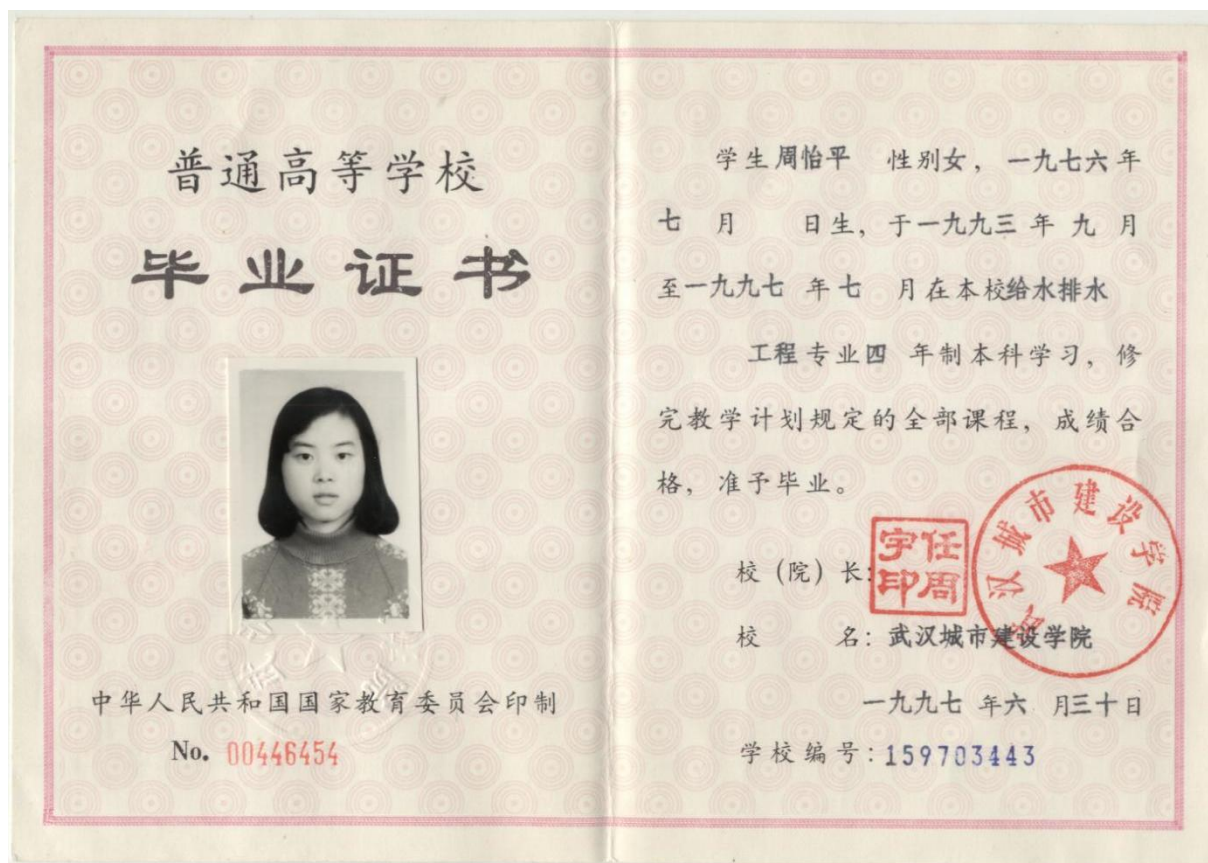 普通高等学校
毕业证书
中华人民共和国国家教育委员会印制
No. 00446454
学生周怡平 性别女，一九七六年
七 月 日生，于一九九三 年 九 月
至一九九七 年七 月在本校给水排水
工程专业四 年制本科学习，修
完教学计划规定的全部课程，成绩合
格，准予毕业。
校（院）长：
任周宇印
武汉城市建设学院
校 名：武汉城市建设学院
一九九七 年六 月三十日
学校编号：159703443